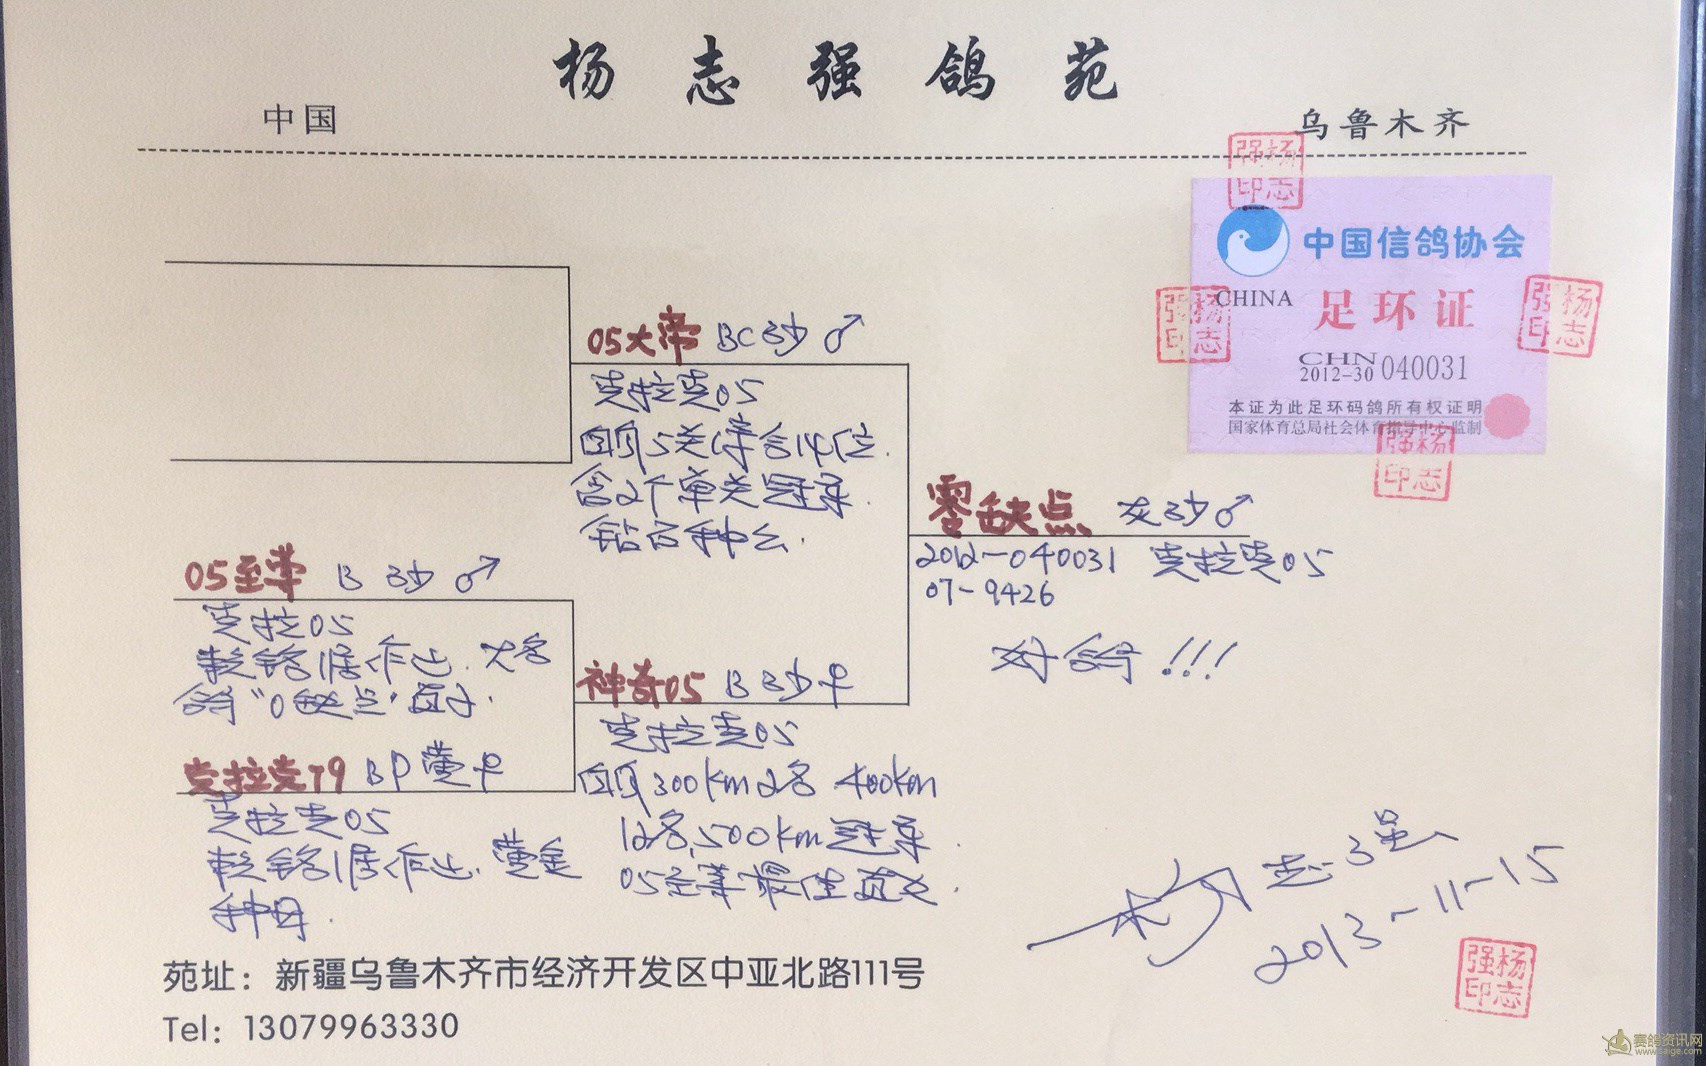 杨志强鸽苑
中国
乌鲁木齐
强杨
印志
中国信鸽协会
CHINA 足环证
强杨
印志
强杨
印志
CHN
2012-30 040031
本证为此足环码鸽所有权证明
国家体育总局社会体育指导中心监制
强杨
印志
05大帝 BC 砂 ♂
克拉克05
自身5关综合14位.
含2个单关冠军.
钻石种公.
零缺点 灰砂♂
2012-040031 克拉克05
07-9426
好鸽!!!
05至尊 B 砂 ♂
克拉05
赖铭信作出.大名
鸽"0缺点"直子.
克拉克79 BP 雌♀
克拉克05
赖铭信作出.黄金
种母.
神奇05 B 砂♀
克拉克05
自身300km2名 400km
12名,500km冠军.
05至尊最佳直女.
杨志强
2013-11-15
强杨
印志
苑址：新疆乌鲁木齐市经济开发区中亚北路111号
Tel：13079963330
赛鸽资讯网
www.saige.com